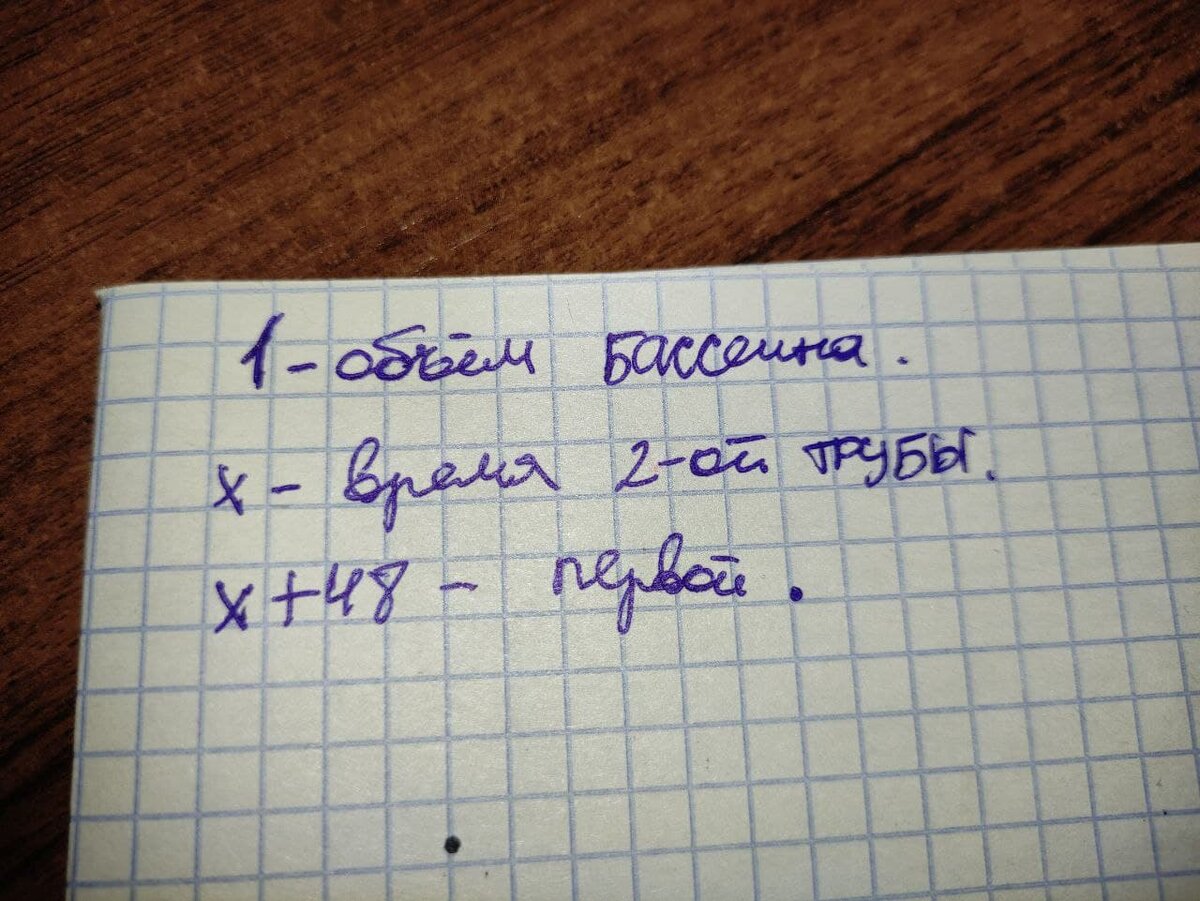 1 - объём бассейна.
x - время 2-ой трубы.
x + 48 - первой.